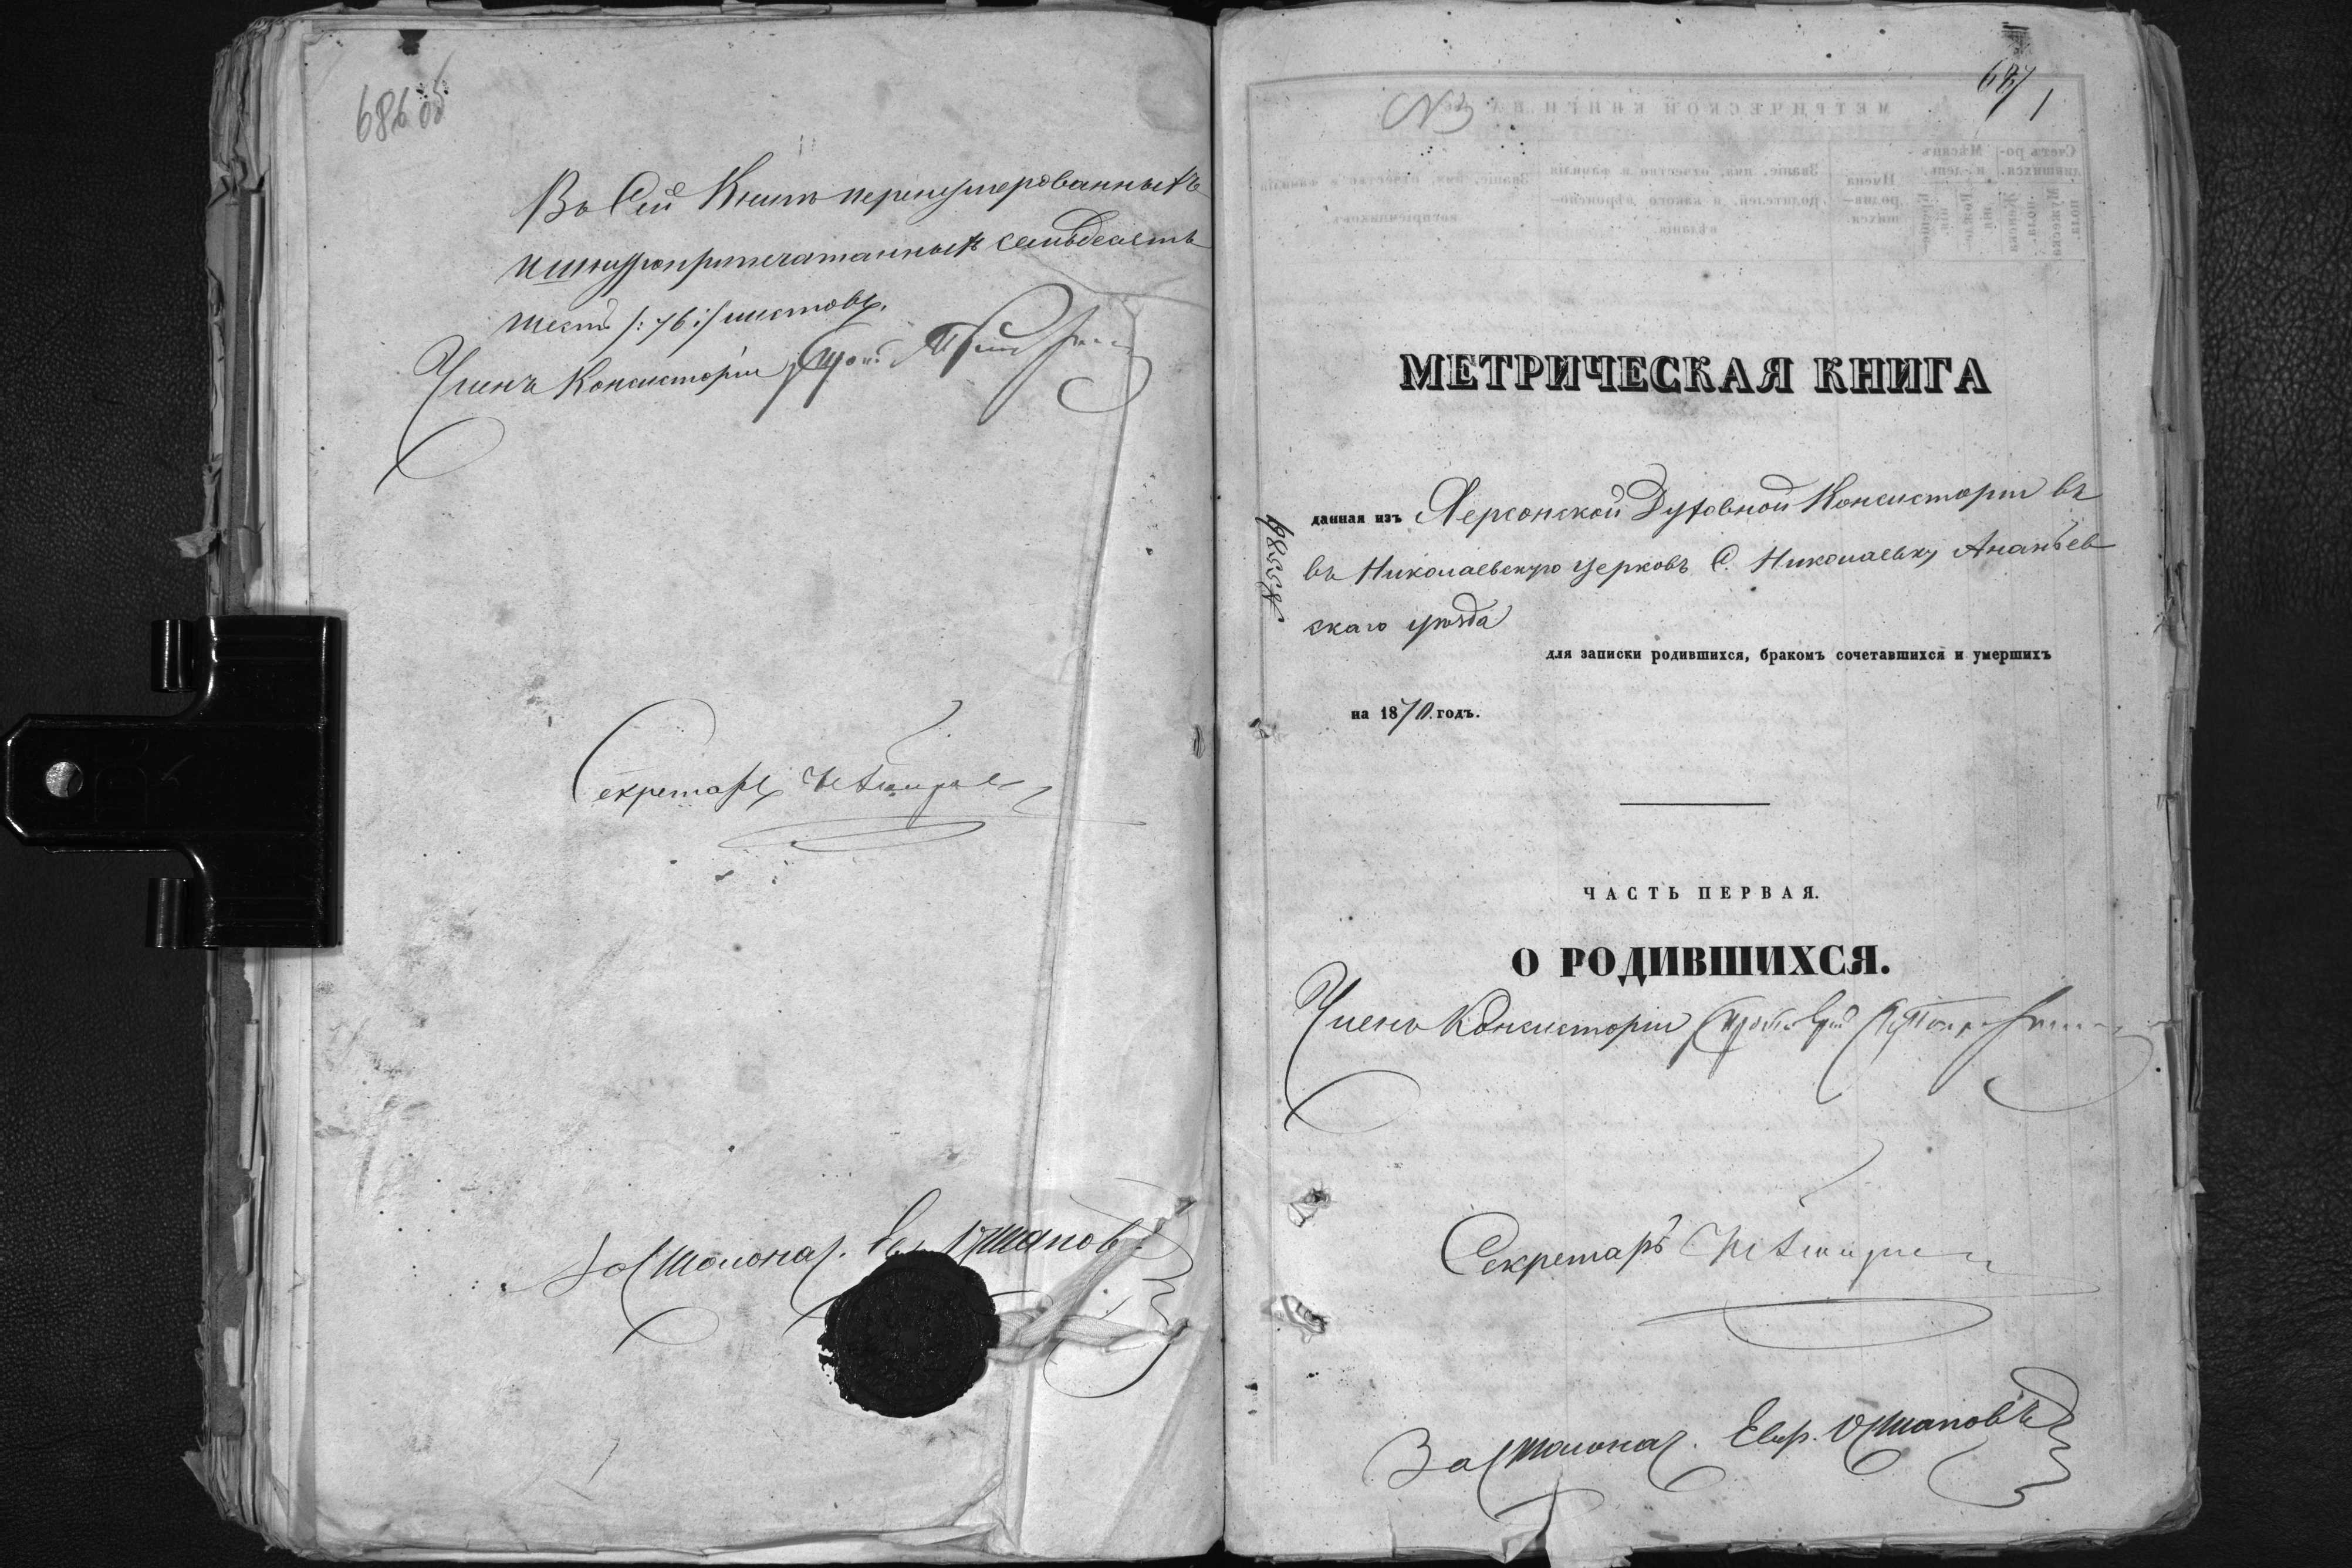 686 об
Въ Сей Книгѣ перенумерованныхъ
и шнуропрпечатанныхъ семьдесятъ
шесть /:76:/ листовъ.
Членъ Консисторіи
Секретарь
За Столонач. Евр. Остаповъ
687
1
N3
МЕТРИЧЕСКАЯ КНИГА
данная изъ Херсонской Духовной Консисторіи въ
въ Николаевскую церковь С. Николаевку Ананьев
скаго уѣзда
для записки родившихся, бракомъ сочетавшихся и умершихъ
на 1870. годъ.
ЧАСТЬ ПЕРВАЯ.
О РОДИВШИХСЯ.
Членъ Консисторіи
Секретарь
За Столонач. Евр. Остаповъ